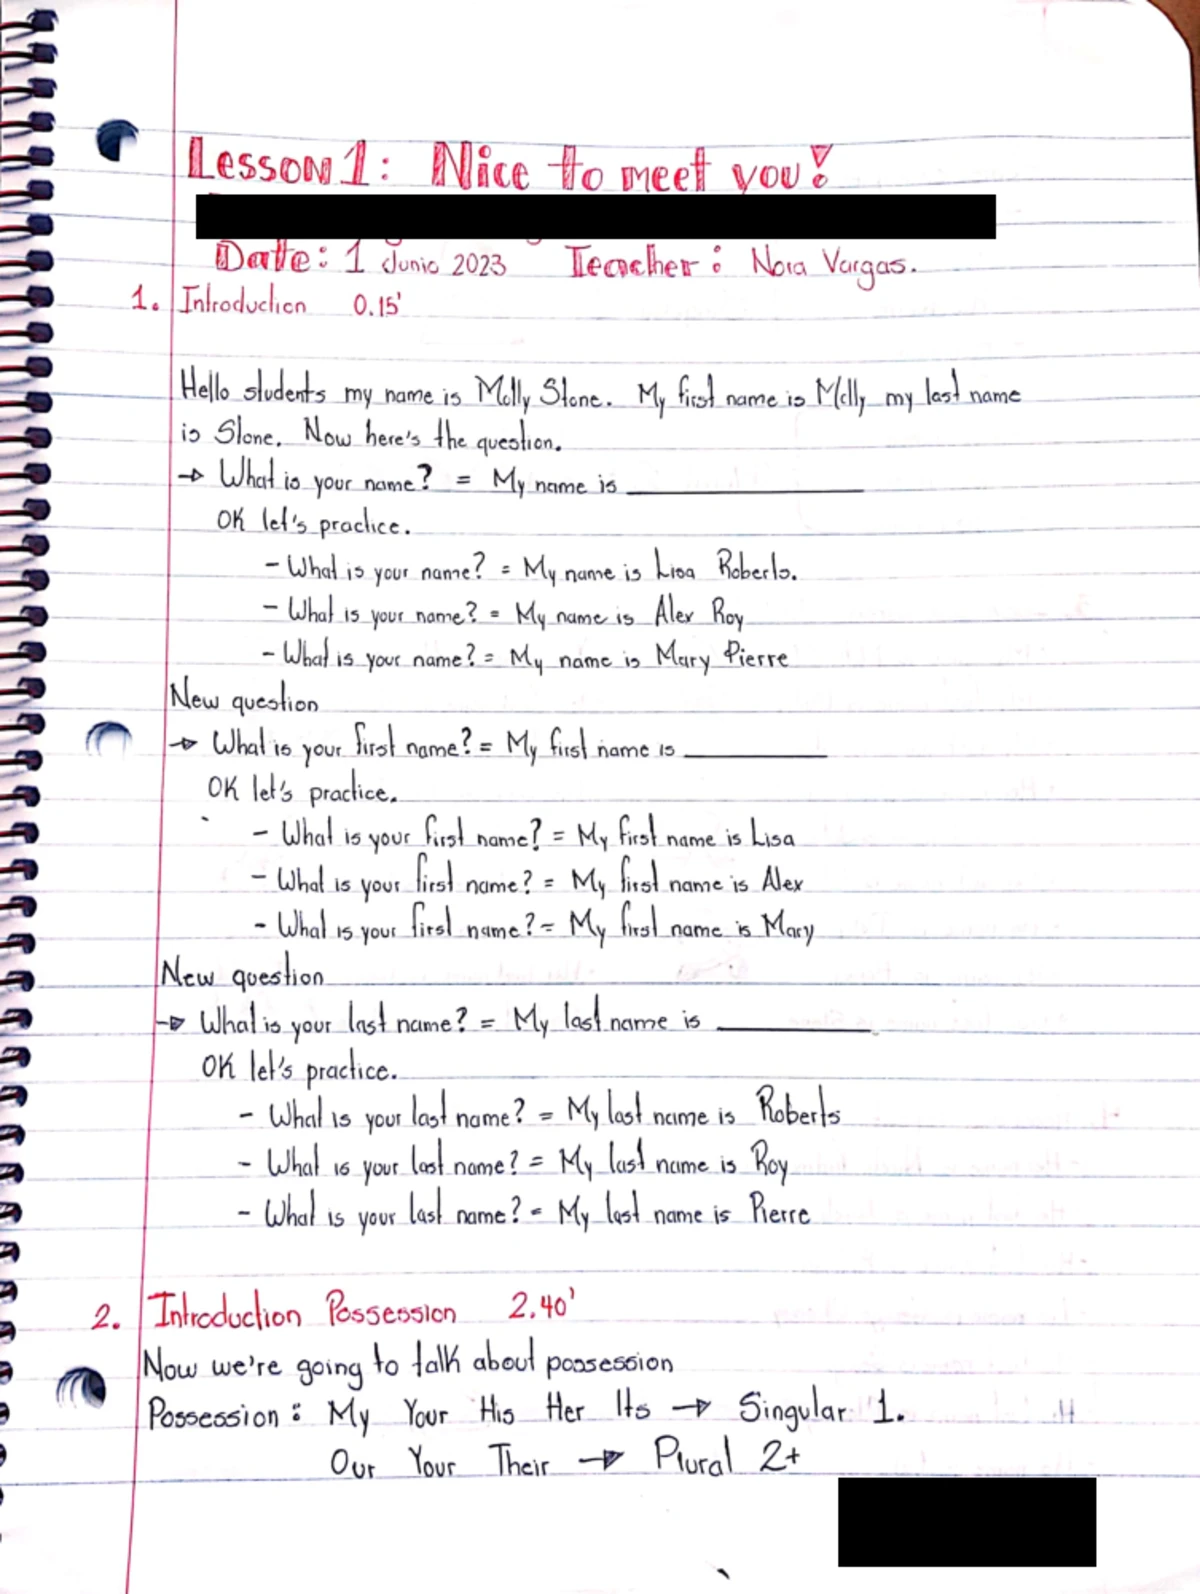 Lesson 1: Nice to meet you!
Date: 1 Junio 2023 Teacher: Nora Vargas.
1. Introduction 0.15'
Hello students my name is Molly Stone. My first name is Molly my last name
is Stone. Now here's the question.
→ What is your name? = My name is ____________
OK let's practice.
- What is your name? = My name is Lisa Roberts.
- What is your name? = My name is Alex Roy
- What is your name? = My name is Mary Pierre
New question
→ What is your first name? = My first name is ________
OK let's practice.
- What is your first name? = My first name is Lisa
- What is your first name? = My first name is Alex
- What is your first name? = My first name is Mary
New question
→ What is your last name? = My last name is ________
OK let's practice.
- What is your last name? = My last name is Roberts
- What is your last name? = My last name is Roy
- What is your last name? = My last name is Pierre
2. Introduction Possession 2.40'
Now we're going to talk about possession
Possession: My Your His Her Its → Singular 1.
Our Your Their → Plural 2+